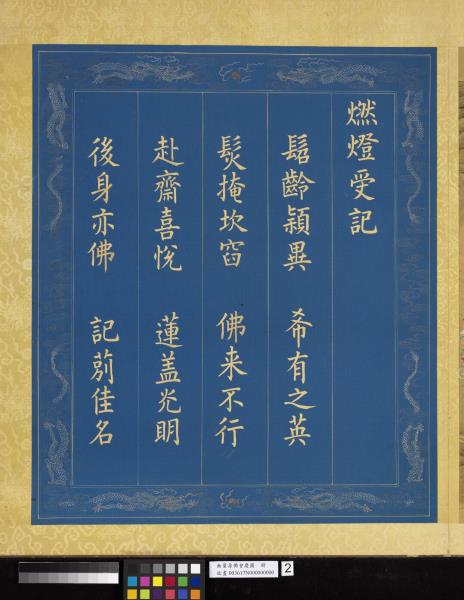 燃燈受記
髫齡穎異　希有之英
髮掩坎窞　佛来不行
赴齋喜悅　蓮盖光明
後身亦佛　記莂佳名
故畫 003617N000000000
2